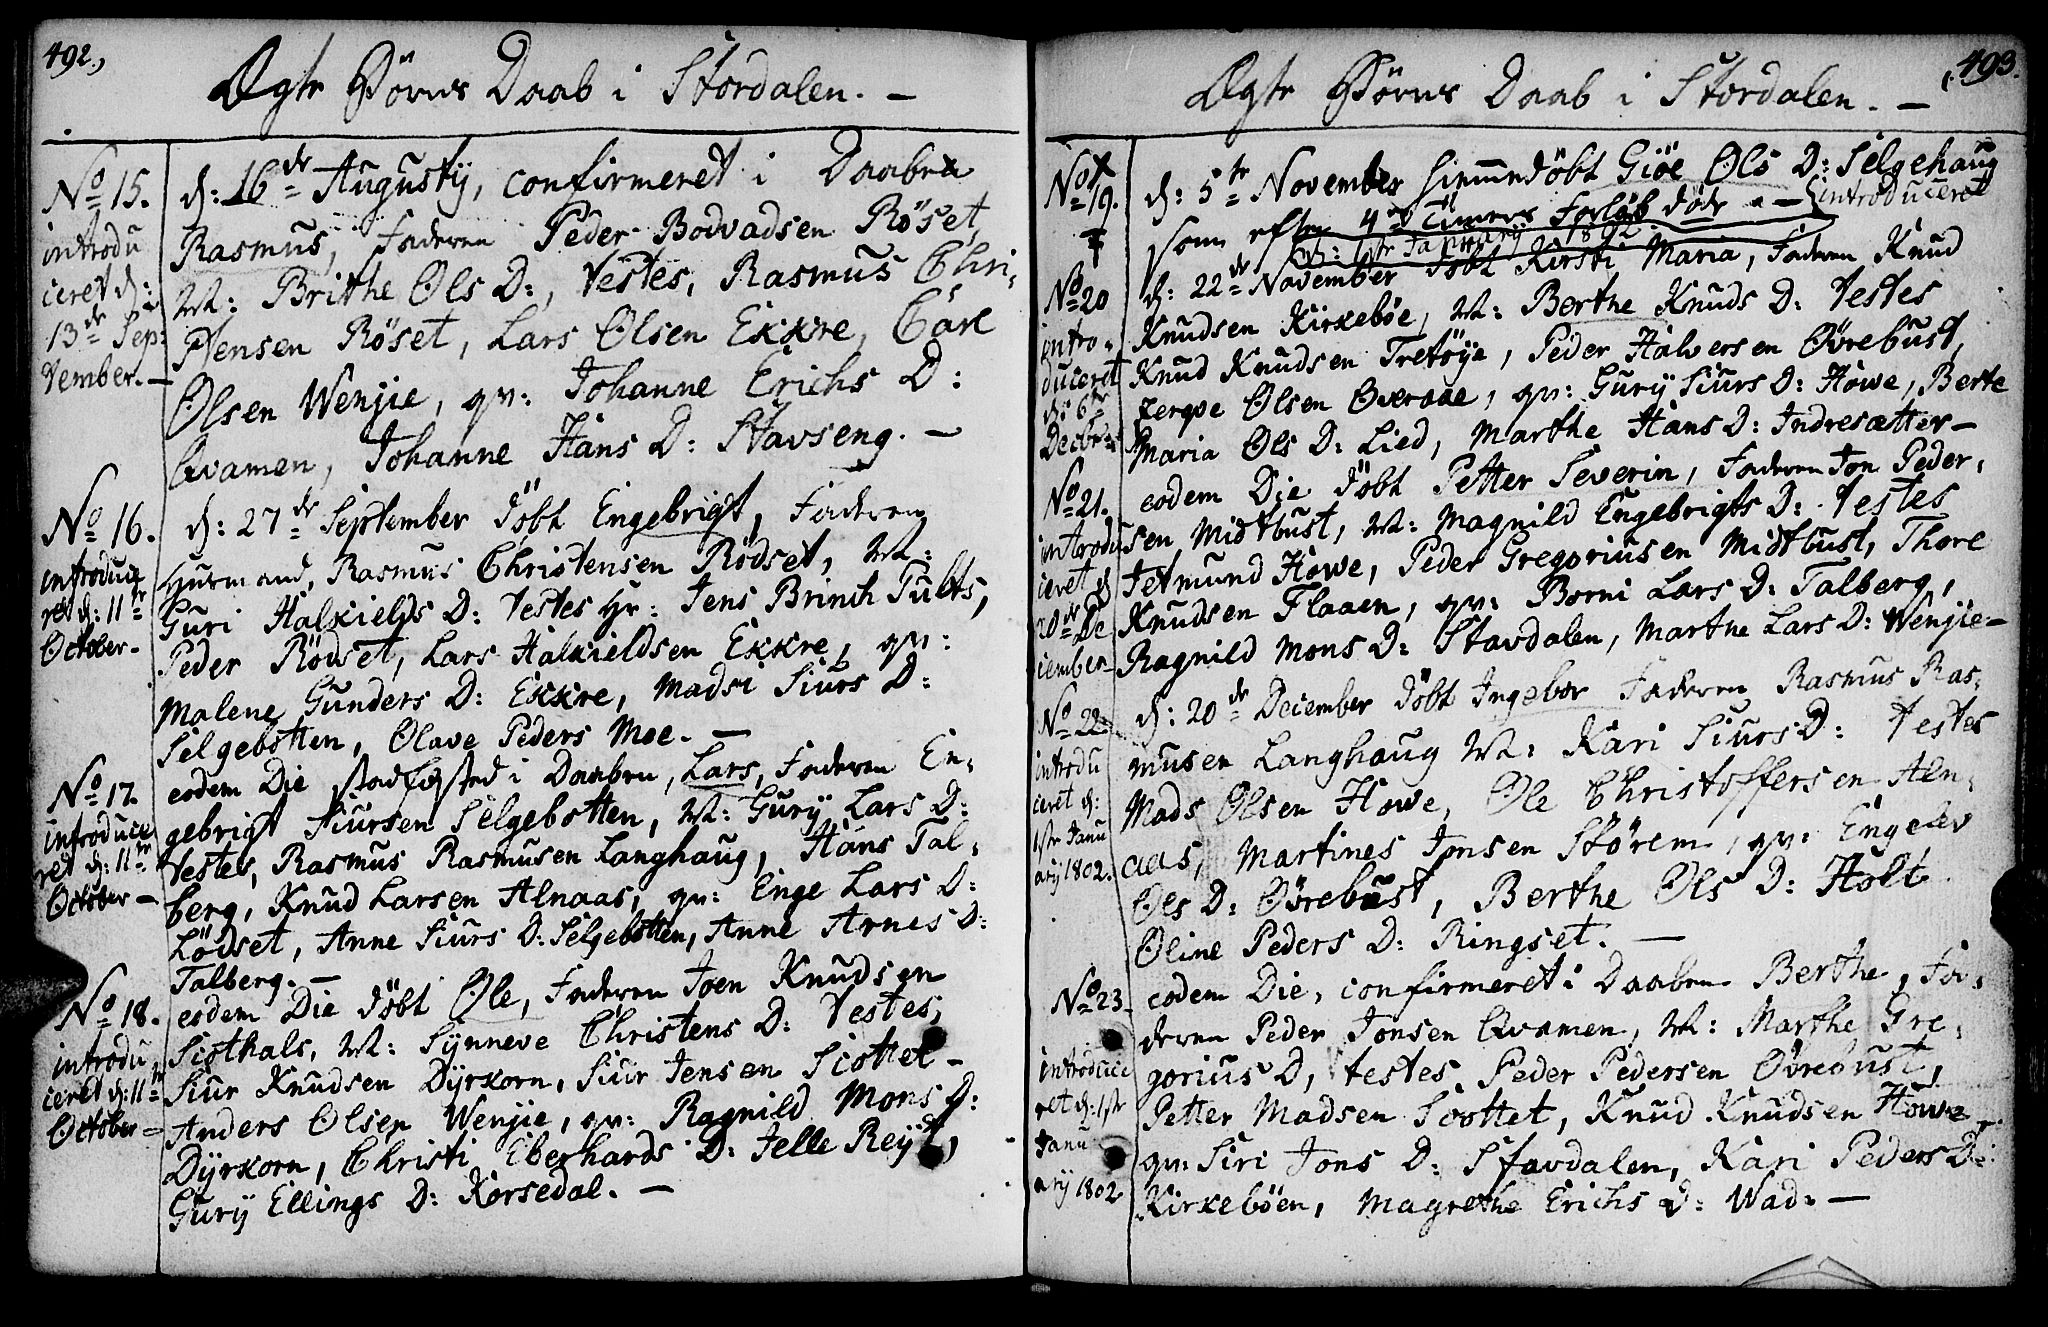 492.,
Ægte Børns Daab i Stordalen. -
No 15.
introdu
ceret d:
13de Sep:
tember. -
d: 16de Augustij, confirmeret i Daaben
Rasmus, Faderen Peder Bodvadsen Röset,
M: Brithe Ols D:, Testes, Rasmus Chri-
stensen Röset, Lars Olsen Ekkre, Carl
Olsen Wenjie, qv: Johanne Erichs D:
Qvamen, Johanne Hans D: Stavseng. -
No 16.
introduce
ret d: 11te
October -
d: 27de September döbt Engebrigt, Faderen
Huusmand, Rasmus Christensen Rödset, M:
Guri Halkields D: Testes Hr: Jens Brinch Tults,
Peder Rödset, Lars Halkieldsen Ekkre, qv:
Malene Gunders D: Ekkre, Madsi Siurs D:
Selgebotten, Olave Peders Moe. -
No 17.
introduce
ret d: 11te
October -
eodem Die stadfæsted i Daaben, Lars, Faderen En-
gebrigt Siursen Selgebotten, M: Gurij Lars D:
Testes, Rasmus Rasmusen Langhaug, Hans Tal-
berg, Knud Larsen Alnaas, qv: Enge Lars D:
Lödset, Anne Siurs D: Selgebotten, Anne Arnes D:
Talberg. -
No 18.
introdu-
ceret d: 11te
October -
eodem Die döbt Ole, Faderen Joen Knudsen
Siothals, M: Synneve Christens D: Testes,
Siur Knudsen Dÿrkorn, Siur Jensen Siottet -
Anders Olsen Wenjie, qv: Ragnild Mons D:
Dÿrkorn, Christi Eberhards D: Jelle Reÿt,
Gury Ellings D: Korsedal. -
493.
Ægte Börns Daab i Stordalen. -
No 19.
d: 5te November hiemmedöbt Giöe Ols D: Selgehaug
som efter 4re Timers Forlöb döde - introduceret
d: 1ste Januarij 1802
No 20
intro-
duceret
d: 6te
Decbr:
d: 22de November döbt Kirsti Maria, Faderen Knud
Knudsen Kirkeböe, M: Berthe Knuds D: Testes
Knud Knudsen Tretöÿe, Peder Halversen Övrebust,
Jergve Olsen Overaae, qv: Gurij Siurs D: Howe, Berte
Maria Ols D: Lied, Marthe Hans D: Indresætter -
No 21.
introdu
ceret d
20de De
cember -
eodem Die döbt Petter Severin, Faderen Jon Peder-
sen Midtbust, M: Magnild Engebrigts D: Testes
Tetmund Howe, Peder Gregoriusen Midtbust, Thore
Knudsen Flaaen, qv: Borni Lars D: Talberg,
Ragnild Mons D: Stavdalen, Marthe Lars D: Wenjie -
No 22.
introdu
ceret d:
1ste Janu
arij 1802.
d: 20de December döbt Ingebor Faderen Rasmus Ras-
musen Langhaug M: Kari Siurs D: Testes
Mads Olsen Howe, Ole Christoffersen Aln-
aas, Martines Jonsen Störem, qv: Engelev
Ols D: Övrebust, Berthe Ols D: Holt
Oline Peders D: Ringset. -
No 23.
introduce
ret d: 1ste
Janu
arij 1802
eodem Die, confirmeret i Daaben Berthe, Fa-
deren Peder Jonsen Qvamen, M: Marthe Gre-
gorius D, testes, Peder Pedersen Övrebust,
Petter Madsen Siottet, Knud Knudsen Howe
qv: Siri Jons D: Stavdalen, Kari Peders D:
Kirkeböen, Magrethe Erichs D: Wad. -